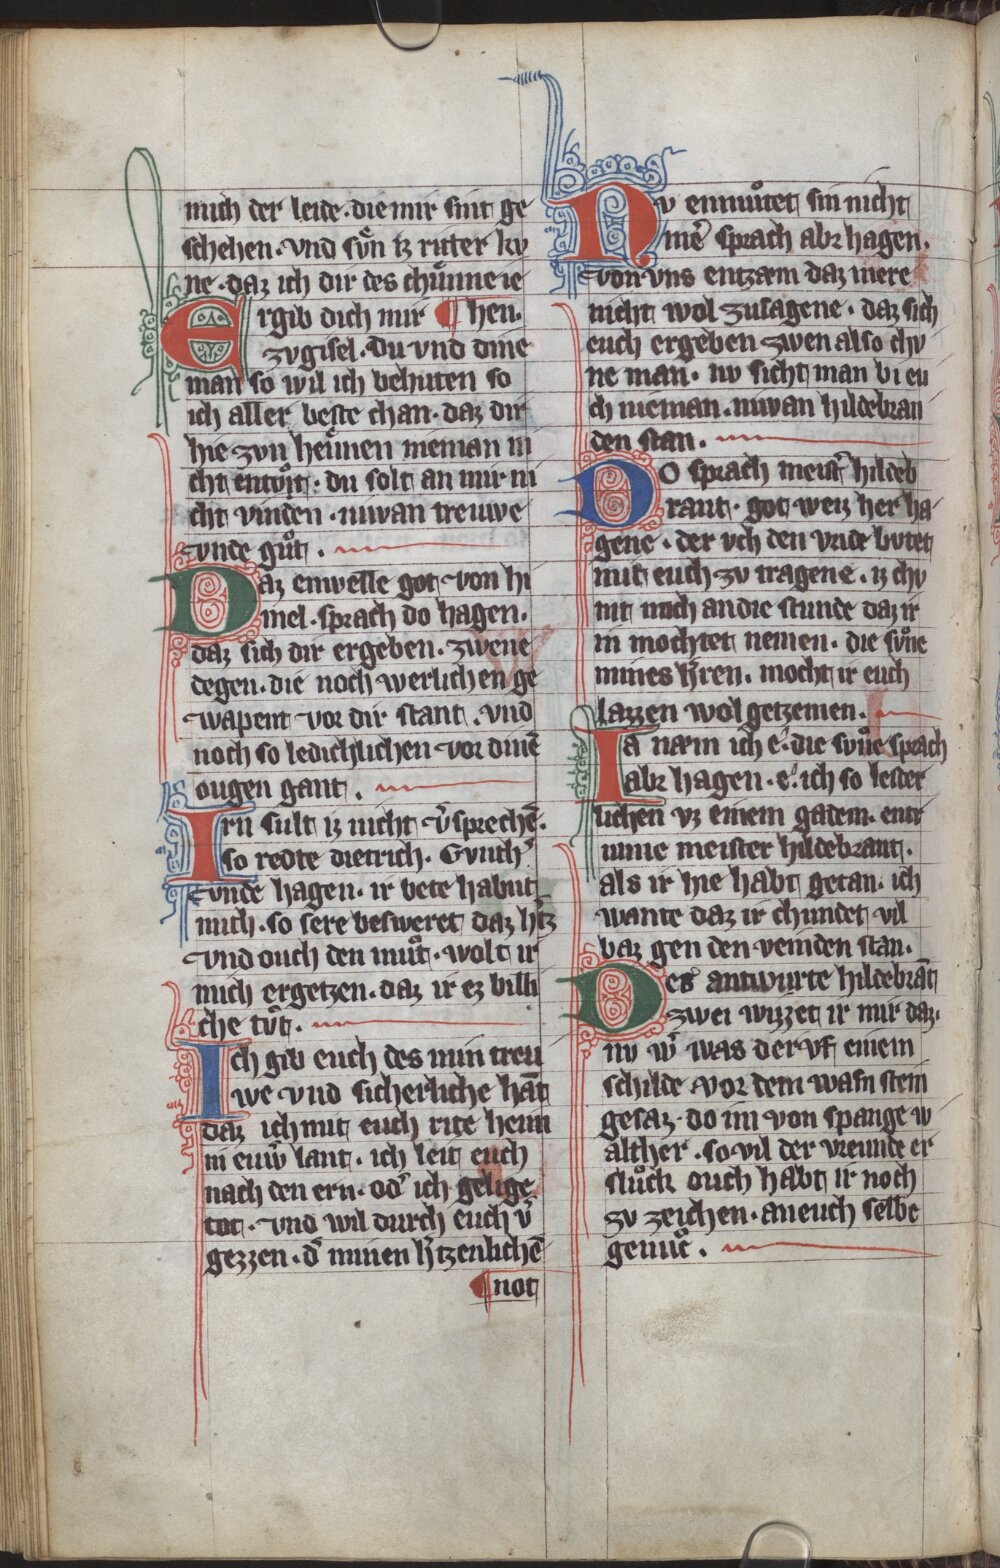 mich der leide · die mir sint ge
schehen · vnd svͦn iz ritter kv
ne · daz ich dir des chuͦnne ie
Ergib dich mir ¶ hen ·
zv gisel · du vnd dine
man so wil ich behuten so
ich aller beste chan · daz dir
hie zvn heuͦnen nieman ni
cht entvͦt · du solt an mir ni
cht vinden · niwan treuwe
vnde guͦt .
Daz enwelle got von hi
mel · sprach do hagen ·
daz sich dir ergeben · zwene
degen · die noch werlichen ge
wapent vor dir stant . vnd
noch so ledichlichen vor dinē
ougen gant .
Irn sult iz nicht v̓sprechē ·
so redte dietrich · Gvnth̓
vnde hagen · ir bete habnt
mich · so sere besweret daz h̓tz
vnd ouch den muͦt · wolt ir
mich ergetzen · daz ir ez billi
che tvͦt .
Ich gib euch des min treu
we vnd sicherliche hāt
daz ich mit euch rite heim
in euw̓ lant · ich leit euch
nach den ern · od̓ ich gelige
tot · vnd wil durch euch v̓
gezzen · d̓ minen h̓tzenlichē
¶ not
Nv enmuͦtet sin nicht
mē sprach abr hagen ·
von vns entzam daz mere
nicht wol zusagene · daz sich
euch ergeben zwen also chv
ne man · nv sicht man bi eu
ch nieman · niwan hildebran
den stan .
Do sprach meist̓ hildeb
rant · got weiz her ha
gene · der vch den vride bvtet
mit euch zv tragene · iz chv
mt noch an die stunde daz ir
in mochtet nemen · die svͦne
mines h̓ren · mocht ir euch
lazzen wol getzemen .
Ia næm ich e · die svͦne sprach
abr hagen · e · ich so lester
lichen vz einem gadem · entr
unne meister hildebrant ·
als ir hie habt getan · ich
wante daz ir chundet vil
baz gen den veinden stan ·
Des antwurte hildebrāt
zwei wizzet ir mir daz ·
nv w̓ was der vf einem
schilde vor dem wasn stein
gesaz · do im von spange w
alther · so vil der vreunde er
sluͦch ouch habt ir noch
zv zeichen · an euch selbe
genuͦc .